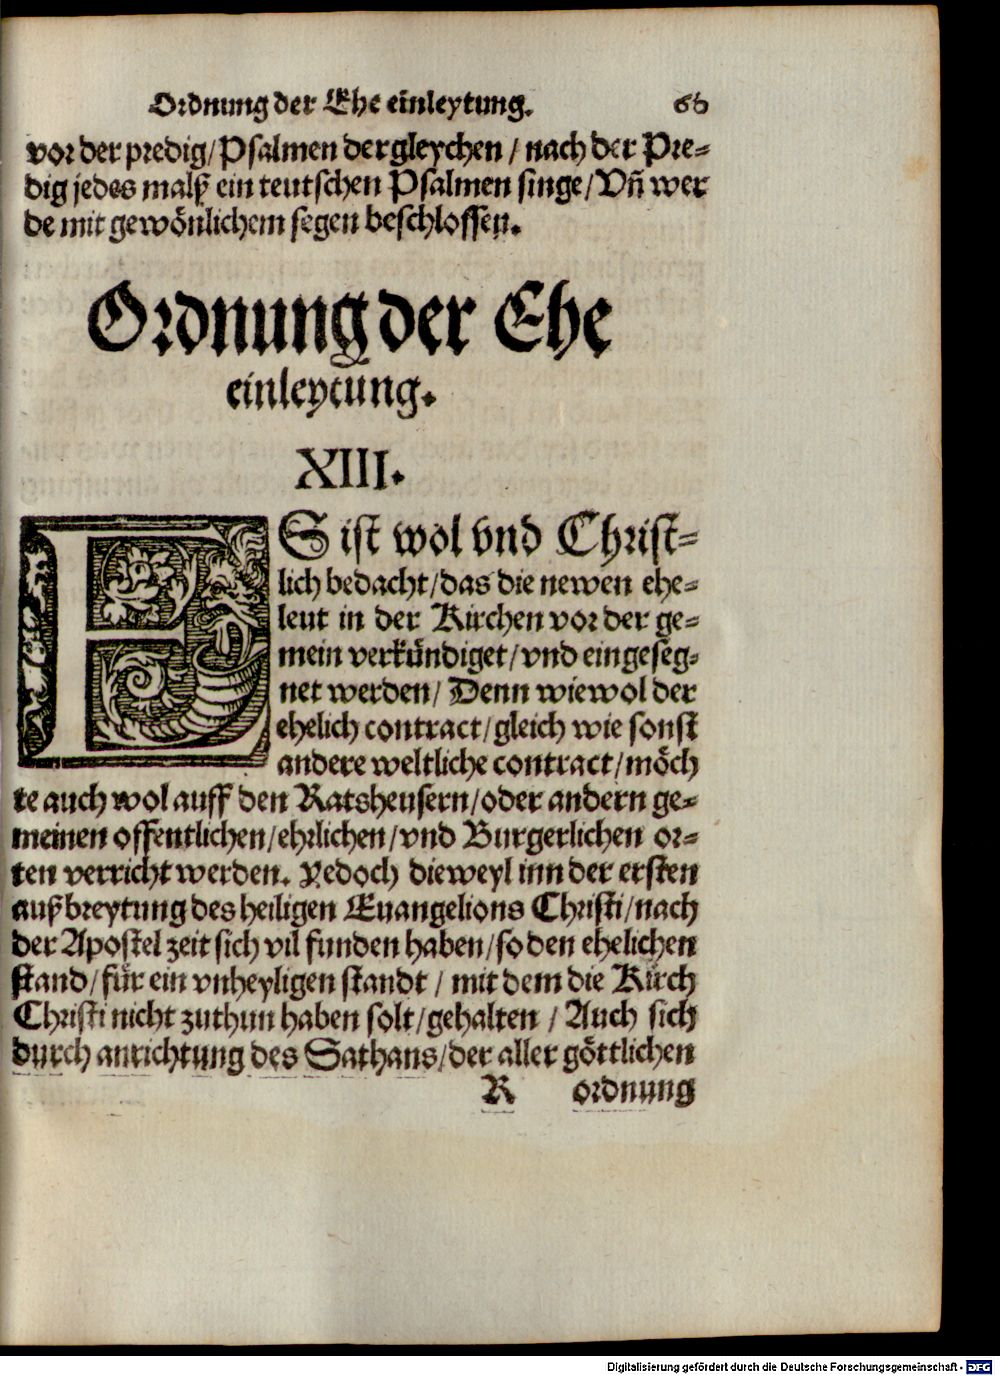 Ordnung der Ehe einleytung. 66
vor der predig/Psalmen dergleychen / nach der Pre-
dig jedes malß ein teutschen Psalmen singe/Vñ wer
de mit gewönlichem segen beschlossen.
Ordnung der Ehe
einleytung.
XIII.
ES ist wol vnd Christ-
lich bedacht/das die newen ehe-
leut in der Kirchen vor der ge-
mein verkündiget/vnd eingeseg-
net werden/ Denn wiewol der
ehelich contract/gleich wie sonst
andere weltliche contract/möch
te auch wol auff den Ratsheusern/oder andern ge-
meinen offentlichen/ehrlichen/vnd Burgerlichen or-
ten verricht werden. Yedoch dieweyl inn der ersten
außbreytung des heiligen Euangelions Christi/nach
der Apostel zeit sich vil funden haben/so den ehelichen
stand/für ein vnheyligen standt / mit dem die Kirch
Christi nicht zuthun haben solt/gehalten / Auch sich
durch anrichtung des Sathans/der aller göttlichen
R ordnung
Digitalisierung gefördert durch die Deutsche Forschungsgemeinschaft - DFG